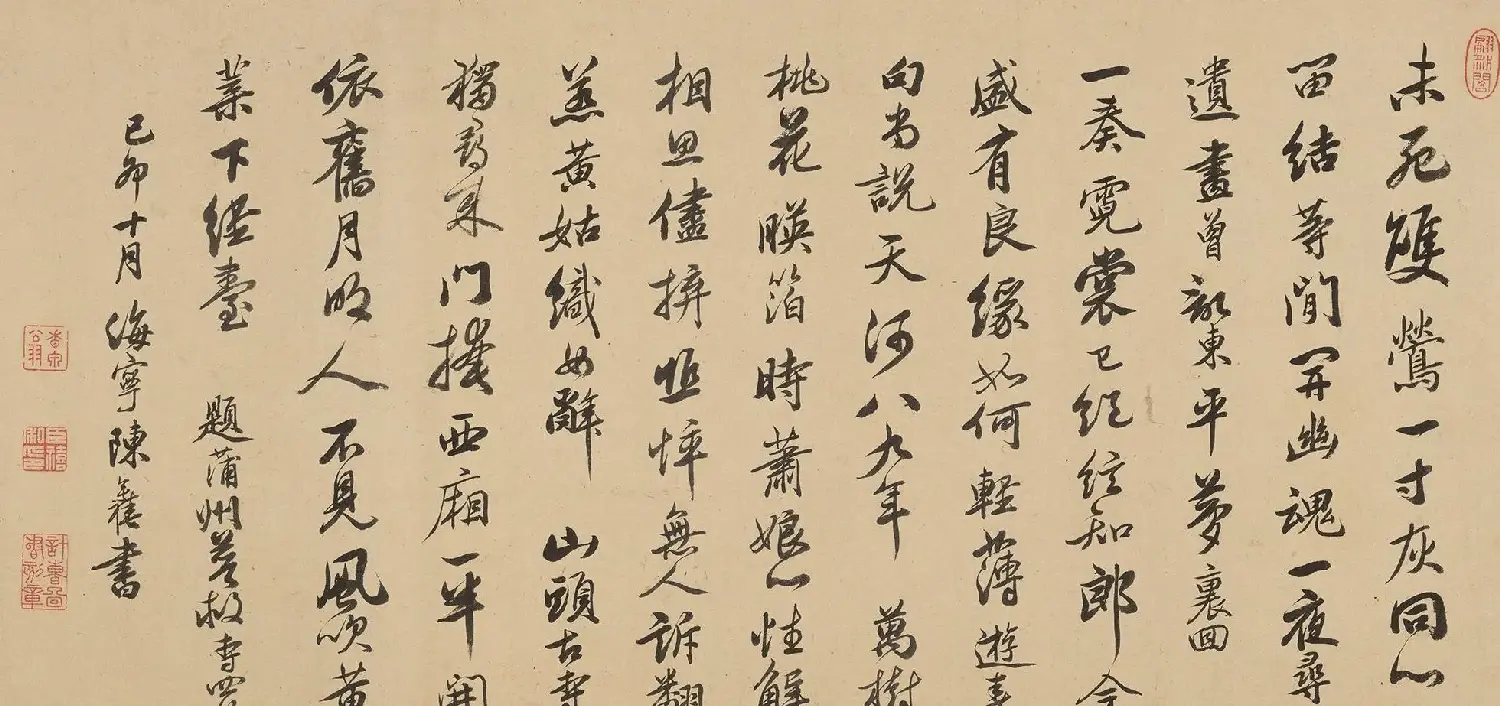 未死雙鶯一寸灰同心
留結等閒開幽魂一夜尋
遺畫曾記東平夢裏回
一奏霓裳已從絃知郎今
盛有良緣如何輕薄遊春
句尚說天河八九年 萬樹
桃花暎箔時蕭娘心性解
相思儘拚區悴無人訴翻
羔黃姑織女辭 山頭古寺
獨尋來門掩西廂一半開
依舊月明人不見風吹黃
葉下經臺 題蒲州普救寺四
己卯十月海寧陳奕書